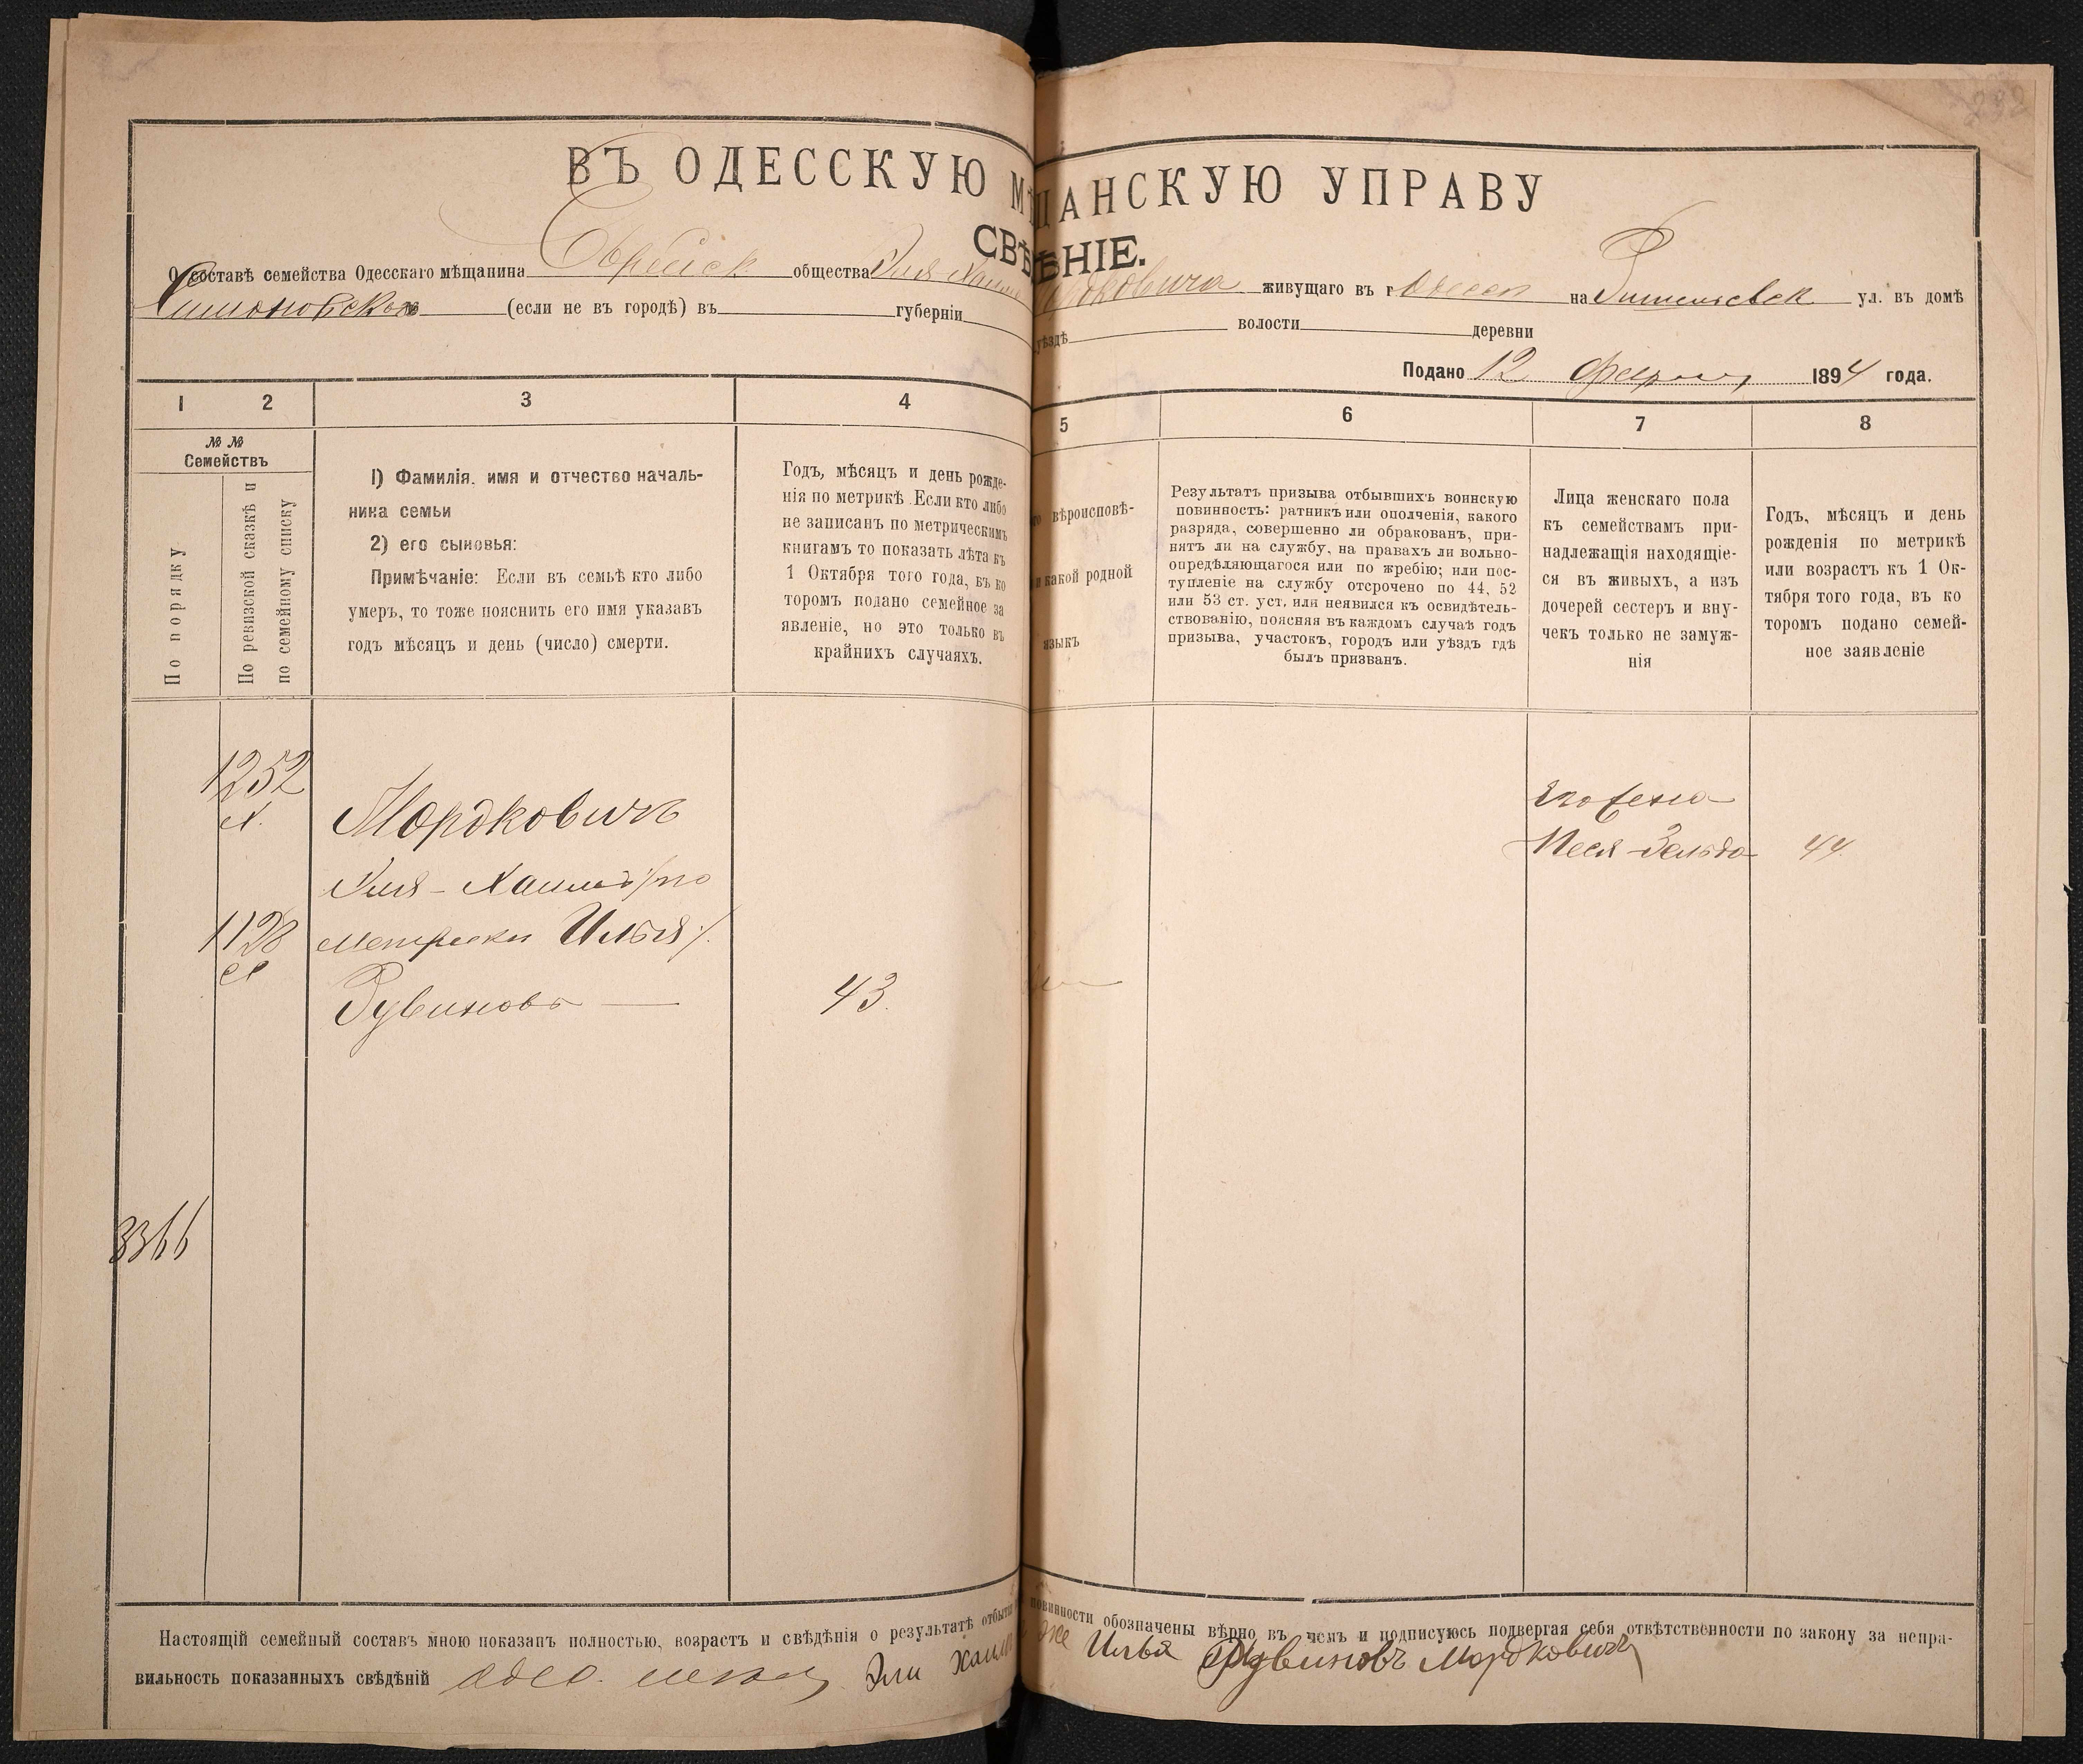 232
ВЪ ОДЕССКУЮ МѢЩАНСКУЮ УПРАВУ
СВѢДѢНІЕ.
О составѣ семейства Одесскаго мѣщанина Еврейск общества Эля Хаима Мордковича живущаго въ г Одессѣ на Ришельевск ул. въ домѣ
(если не въ городѣ) въ губерніи уѣздѣ волости деревни
Подано 12 Февраля 1894 года.
1 2 3 4 5 6 7 8
№ №
Семействъ
По порядку
По ревизской сказкѣ и
по семейному списку
1) Фамилія, имя и отчество началь-
ника семьи
2) его сыновья:
Примѣчаніе: Если въ семьѣ кто либо
умеръ, то тоже пояснить его имя указавъ
годъ мѣсяцъ и день (число) смерти.
Годъ, мѣсяцъ и день рожде-
нія по метрикѣ. Если кто либо
не записанъ по метрическимъ
книгамъ то показать лѣта къ
1 Октября того года, въ ко
торомъ подано семейное за
явленіе, но это только въ
крайнихъ случаяхъ.
вѣроисповѣ-
и какой родной
языкъ
Результатъ призыва отбывшихъ воинскую
повинность: ратникъ или ополченія, какого
разряда, совершенно ли обракованъ, при-
нятъ ли на службу, на правахъ ли вольно-
опредѣляющагося или по жребію; или пос-
тупленіе на службу отсрочено по 44, 52
или 53 ст. уст. или неявился къ освидѣтель-
ствованію, поясняя въ каждомъ случаѣ годъ
призыва, участокъ, городъ или уѣздъ гдѣ
былъ призванъ.
Лица женскаго пола
къ семействамъ при-
надлежащія находящіе-
ся въ живыхъ, а изъ
дочерей сестеръ и вну-
чекъ только не замуж-
нія
Годъ, мѣсяцъ и день
рожденія по метрикѣ
или возрастъ къ 1 Ок-
тября того года, въ ко
торомъ подано семей-
ное заявленіе
1252
Мордковичъ
Эля-Хаимъ /по
1128
метрики Илья/.
Рувиновъ — 43.
Его жена
Песя-Зельда 44.
3366
Настоящій семейный составъ мною показанъ полностью, возрастъ и свѣдѣнія о результатѣ отбытія повинности обозначены вѣрно въ чемъ и подписуюсь подвергая себя отвѣтственности по закону за непра-
вильность показанныхъ свѣдѣній Одес. мѣщ. Эли Хаимъ же Илья Рувиновъ Мордковичъ